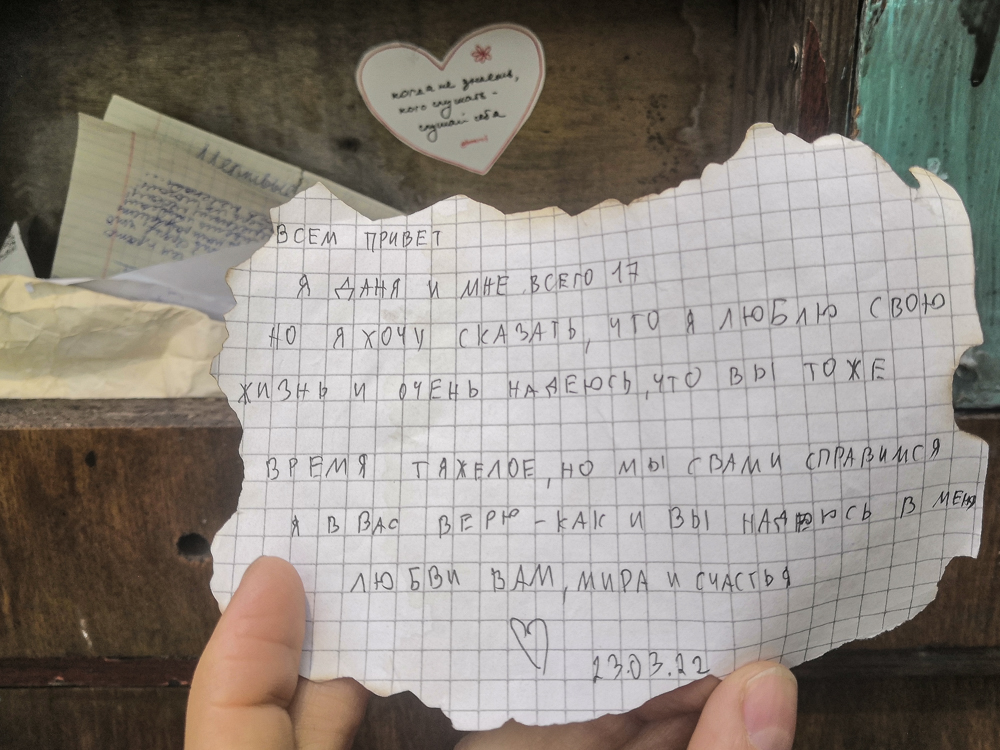 когда не знаешь,
кого слушать -
слушай себя
ВСЕМ ПРИВЕТ
Я ДАНЯ И МНЕ ВСЕГО 17
НО Я ХОЧУ СКАЗАТЬ, ЧТО Я ЛЮБЛЮ СВОЮ
ЖИЗНЬ И ОЧЕНЬ НАДЕЮСЬ, ЧТО ВЫ ТОЖЕ
ВРЕМЯ ТЯЖЕЛОЕ, НО МЫ СВАМИ СПРАВИМСЯ
Я В ВАС ВЕРЮ - КАК И ВЫ НАДЕЮСЬ В МЕНЯ
ЛЮБВИ ВАМ, МИРА И СЧАСТЬЯ
23.03.22